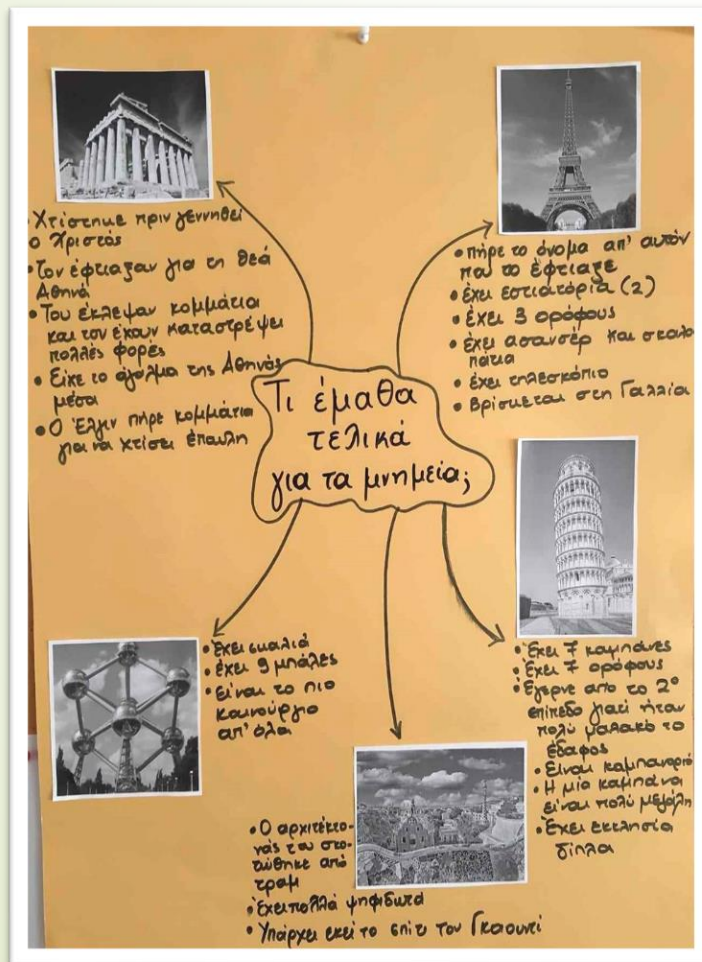 • Χτίστηκε πριν γεννηθεί
ο Χριστός
• Τον έφτιαξαν για τη θεά
Αθηνά
• Του έκλεψαν κομμάτια
και τον έχουν καταστρέψει
πολλές φορές
• Είχε το άγαλμα της Αθηνάς
μέσα
• Ο Έλγιν πήρε κομμάτια
για να χτίσει έπαυλη
• πήρε το όνομα απ' αυτόν
που το έφτιαξε
• έχει εστιατόρια (2)
• έχει 3 ορόφους
• έχει ασανσέρ και σκαλο
πάτια
• έχει τηλεσκόπιο
• βρίσκεται στη Γαλλία
Τι έμαθα
τελικά
για τα μνημεία;
• Έχει 7 καμπάνες
• Έχει 7 ορόφους
• Έγερνε από το 2ο
επίπεδο γιατί ήταν
πολύ μαλακό το
έδαφος
• Είναι καμπαναριό
• Η μία καμπάνα
είναι πολύ μεγάλη
• Έχει εκκλησία
δίπλα
• Έχει σκαλιά
• έχει 9 μπάλες
• είναι το πιο
καινούργιο
απ' όλα
• Ο αρχιτέκτο-
νάς του σκο-
τώθηκε από
τραμ
• Έχει πολλά ψηφιδωτά
• Υπάρχει εκεί το σπίτι του Γκαουντί